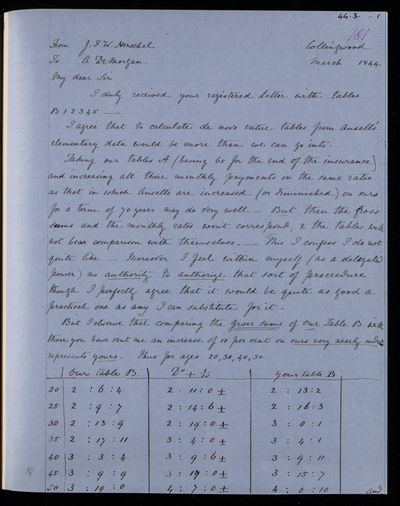 44.3. .1
181
From J. F. W. Herschel Collingwood
To A De Morgan. March 1844.
My dear Sir
I duly received your registered letter with tables
B 1 2 3 4 5 —
I agree that to calculate de novo entire tables from Ansell's
elementary data would be more than we can go into.
Taking our tables A (having 60 for the end of the insurance)
and increasing all their monthly payments on the same rates
as that in which Ansells are increased (or diminished) on ours
for a term of 70 years may do very well. But then the gross
sums and the monthly rates won't correspond, & the tables will
not bear comparison with themselves. — This I confess I do not
quite like — Moreover I feel within myself (as a delegated
power) no authority to authorize that sort of proceedure
though I perfectly agree that it would be quite as good a
practical one as any I can substitute for it.
But I observe that comparing the gross sums of our Table B with
those you have sent me an increase of 10 per cent on ours very nearly
represents yours. Thus for ages 20, 30, 40, 50
Our table B. Do + 1/10 Your table B
20 2 : 6 : 4 2 : 11 : 0 ± 2 : 13 : 2
25 2 : 9 : 7 2 : 14 : 6 ± 2 : 16 : 3
30 2 : 13 : 9 2 : 19 : 0 ± 3 : 0 : 1
35 2 : 17 : 11 3 : 4 : 0 ± 3 : 4 : 1
40 3 : 3 : 4 3 : 9 : 6 ± 3 : 9 : 11
45 3 : 9 : 9 3 : 17 : 0 ± 3 : 15 : 7
50 3 : 19 : 0 4 : 7 : 0 ± 4 : 0 : 10
and